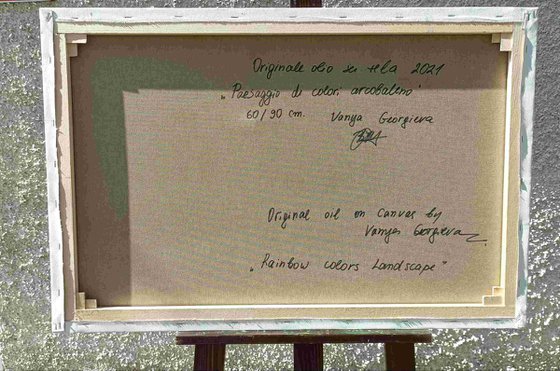 Originale olio su tela 2021
„Paesaggio di colori arcobaleno"
60/90 cm. Vanya Georgieva
Original oil on canvas by
Vanya Georgieva
„Rainbow colors Landscape"